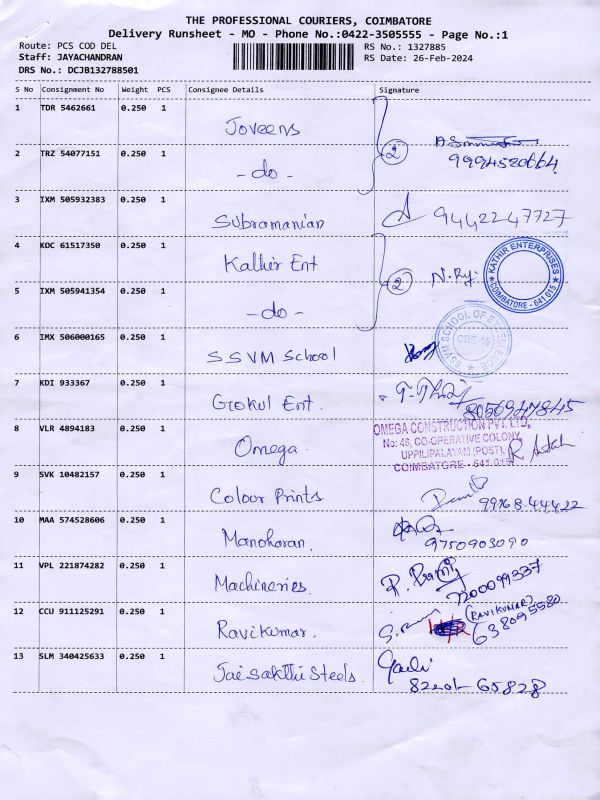 THE PROFESSIONAL COURIERS, COIMBATORE
Delivery Runsheet - MO - Phone No.:0422-3505555 - Page No.:1
Route: PCS COD DEL
Staff: JAYACHANDRAN
DRS No.: DCJB132788501
RS No.: 1327885
RS Date: 26-Feb-2024
S No Consignment No Weight PCS Consignee Details Signature
1 TDR 5462661 0.250 1 Joveens
2 TRZ 54077151 0.250 1 - do - 2 9994520664
3 IXM 505932383 0.250 1 Subramanian 9442247727
4 KOC 61517350 0.250 1 Kathir Ent
KATHIR ENTERPRISES
COIMBATORE - 641 015
5 IXM 505941354 0.250 1 - do - 2
6 IMX 506000165 0.250 1 SSVM School
SSVM SCHOOL OF EXCELLENCE
7 KDI 933367 0.250 1 Gokul Ent. 8056947845
8 VLR 4894183 0.250 1 Omega.
OMEGA CONSTRUCTION PVT. LTD,
No: 46, CO-OPERATIVE COLONY,
UPPILIPALAYAM (POST),
COIMBATORE - 641 015
9 SVK 10482157 0.250 1 Colour Prints 99768 44422
10 MAA 574528606 0.250 1 Manoharan. 9750903090
11 VPL 221874282 0.250 1 Machineries. 7200099337
12 CCU 911125291 0.250 1 Ravikumar. (RAVIKUMAR) 638095580
13 SLM 340425633 0.250 1 Jai Sakthi Steels. 82201-65828